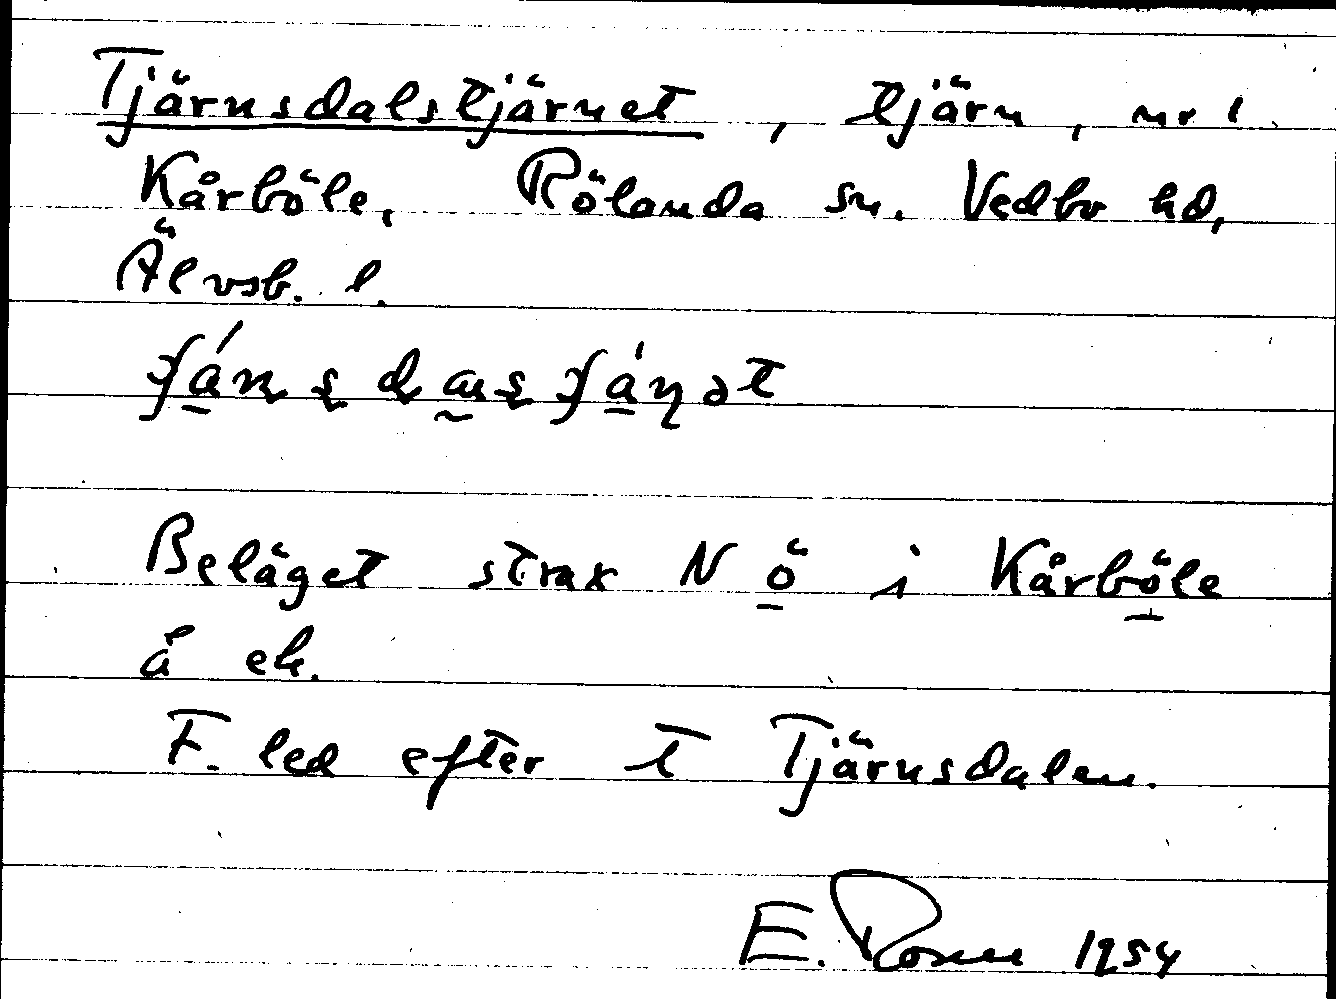 Tjärnsdalstjärnet, tjärn, nr 1
Kårböle, Rölanda sn. Vedbo hd,
Älvsb. l.
Beläget strax N ö i Kårböle
å ek.
F. led efter t Tjärnsdalen.
E. Rosen 1954